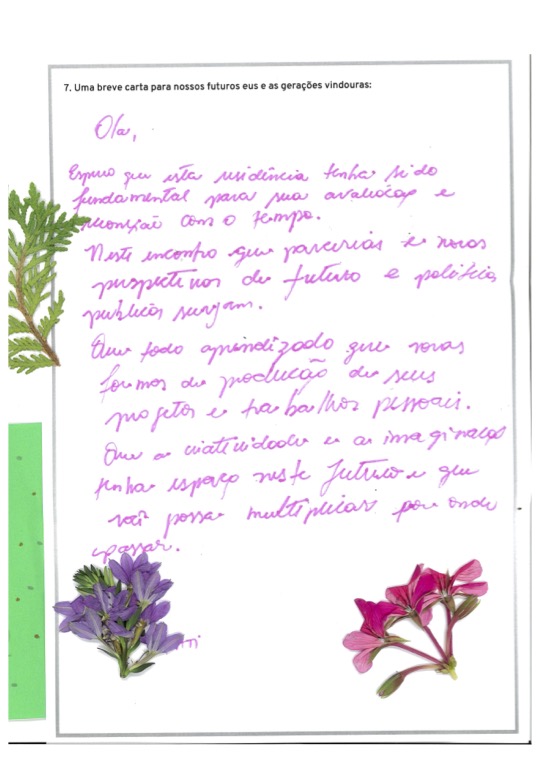 7. Uma breve carta para nossos futuros eus e as gerações vindouras:
Ola,
Espero que esta residência tenha sido
fundamental para sua avaliação e
conexão com o tempo.
Neste encontro que parcerias e novas
perspectivas de futuro e política
publicas surjam.
Que todo aprendizado gere novas
formas de produção de seus
projetos e trabalhos pessoais.
Que a criatividade e a imaginação
tenha espaço neste futuro e que
você possa multiplicar por onde
passar.